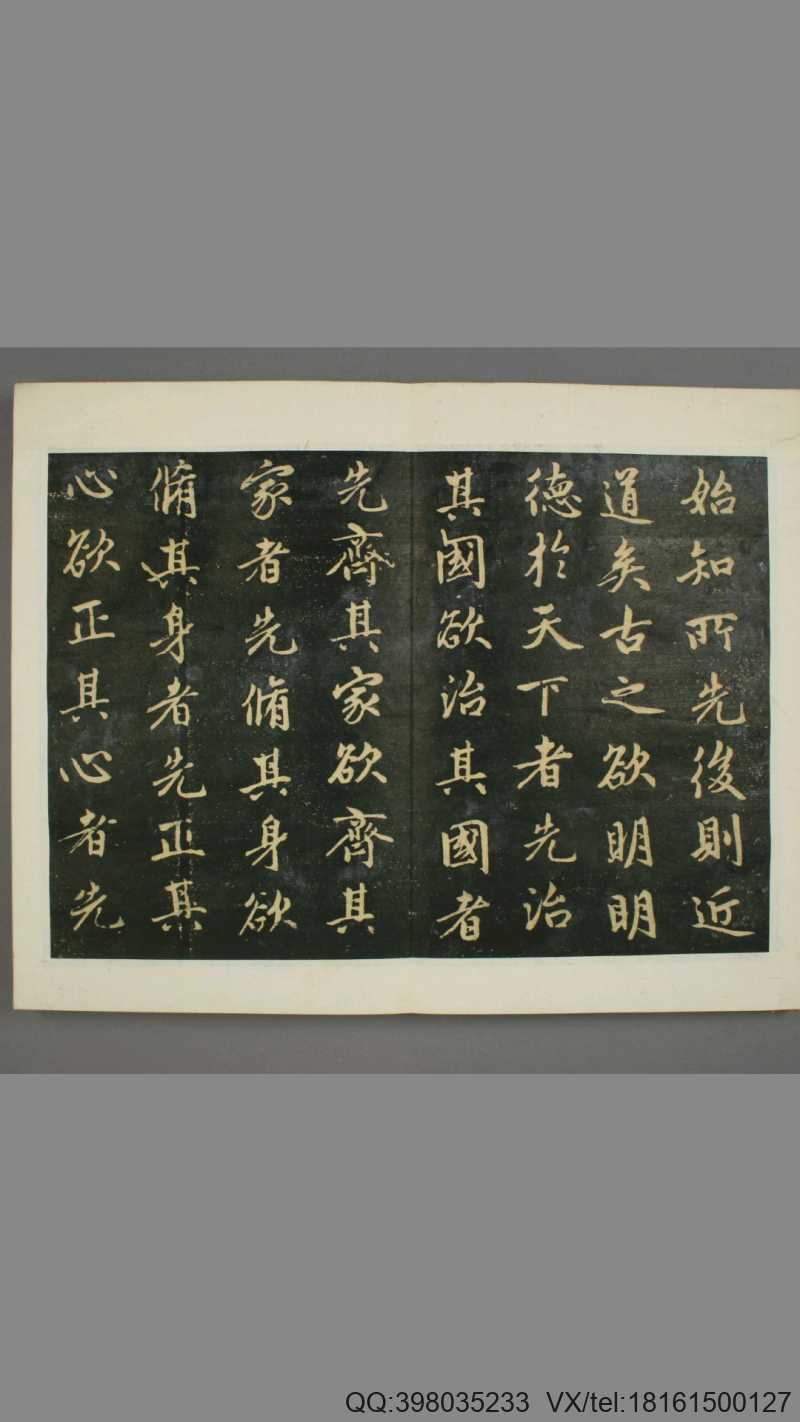 始知所先後則近
道矣古之欲明明
德於天下者先治
其國欲治其國者
先齊其家欲齊其
家者先脩其身欲
脩其身者先正其
心欲正其心者先
QQ:398035233 VX/tel:18161500127